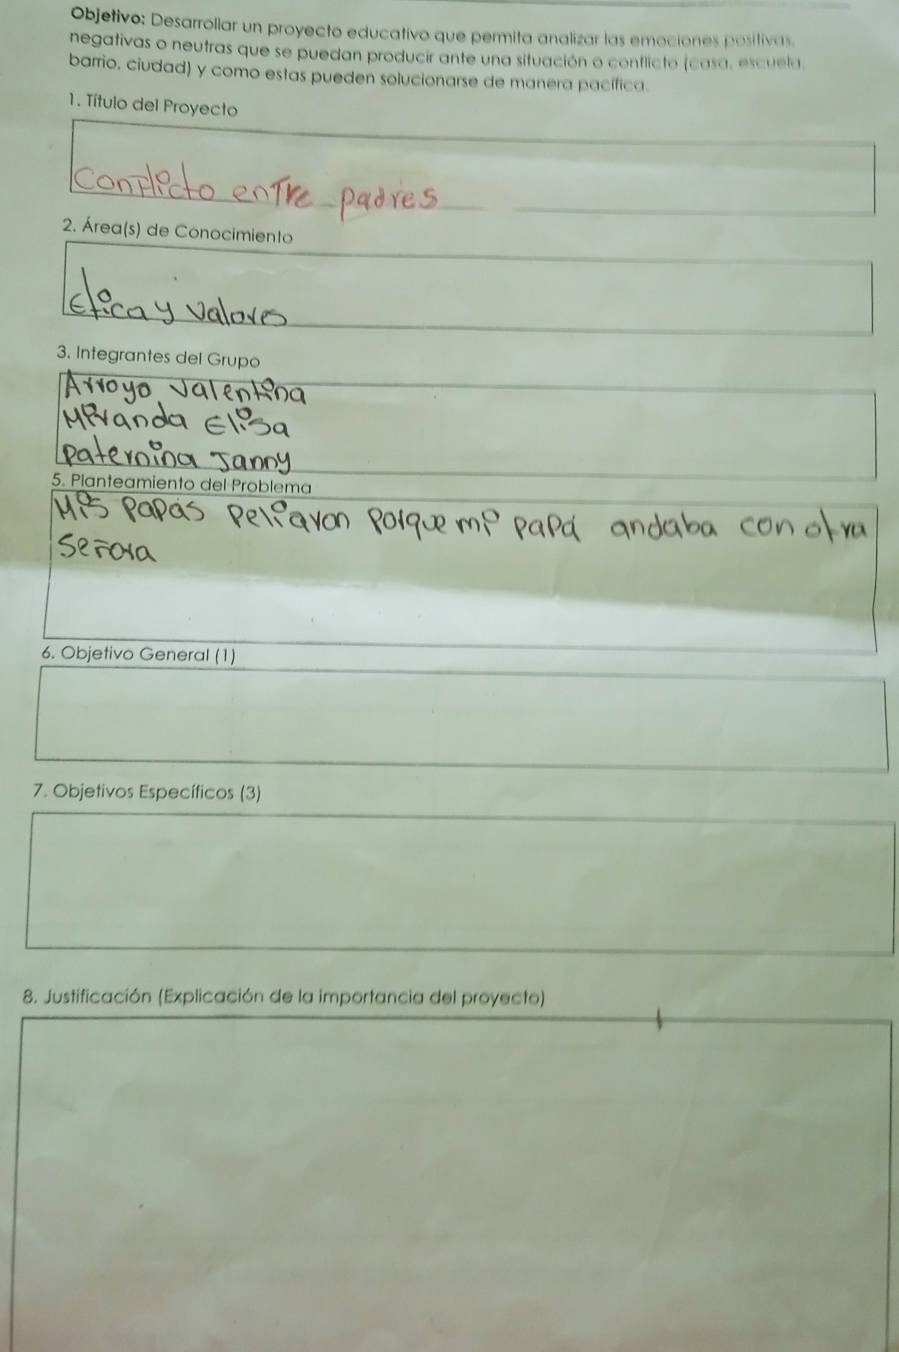 Objetivo: Desarrollar un proyecto educativo que permita analizar las emociones positivas,
negativas o neutras que se puedan producir ante una situación o conflicto (casa, escuela,
barrio, ciudad) y como estas pueden solucionarse de manera pacífica.
1. Título del Proyecto
Conflicto entre padres
2. Área(s) de Conocimiento
Etica y valores
3. Integrantes del Grupo
Arroyo Valentina
Miranda Elisa
Paternina Janny
5. Planteamiento del Problema
Mis Papás Peliaron Porque mi papá andaba con otra
señora
6. Objetivo General (1)
7. Objetivos Específicos (3)
8. Justificación (Explicación de la importancia del proyecto)